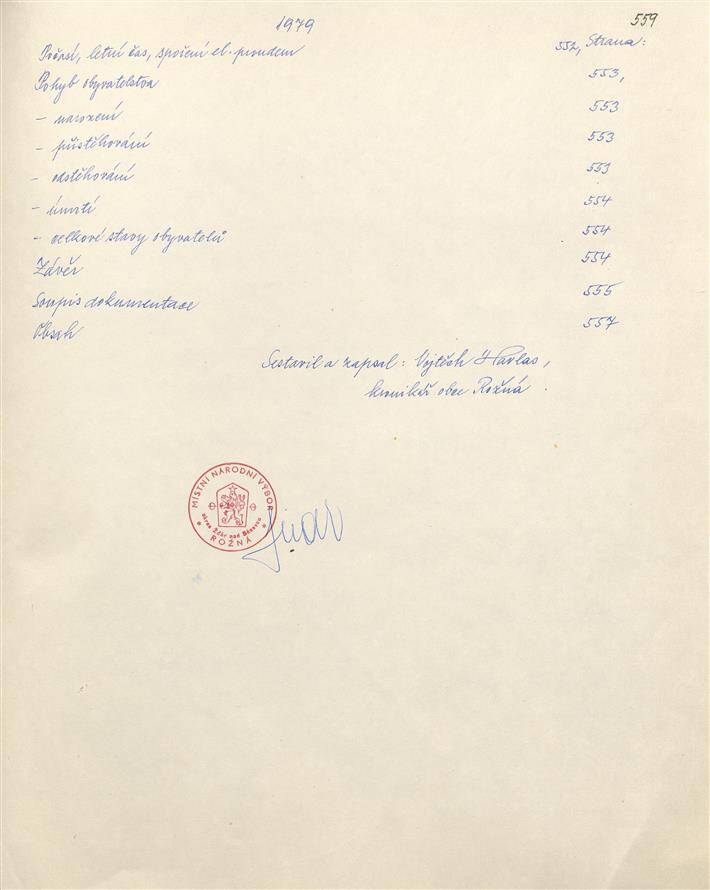 1979
559
Počasí, letní čas, spoření el. proudem 552, Strana:
Pohyb obyvatelstva 553,
- narození 553
- přistěhování 553
- odstěhování 553
- úmrtí 554
- celkové stavy obyvatelů 554
Závěr 554
Soupis dokumentace 555
Obsah 557
Sestavil a zapsal: Vojtěch Havlas,
kronikář obce Rožná.
MÍSTNÍ NÁRODNÍ VÝBOR
okres Žďár nad Sázavou
ROŽNÁ